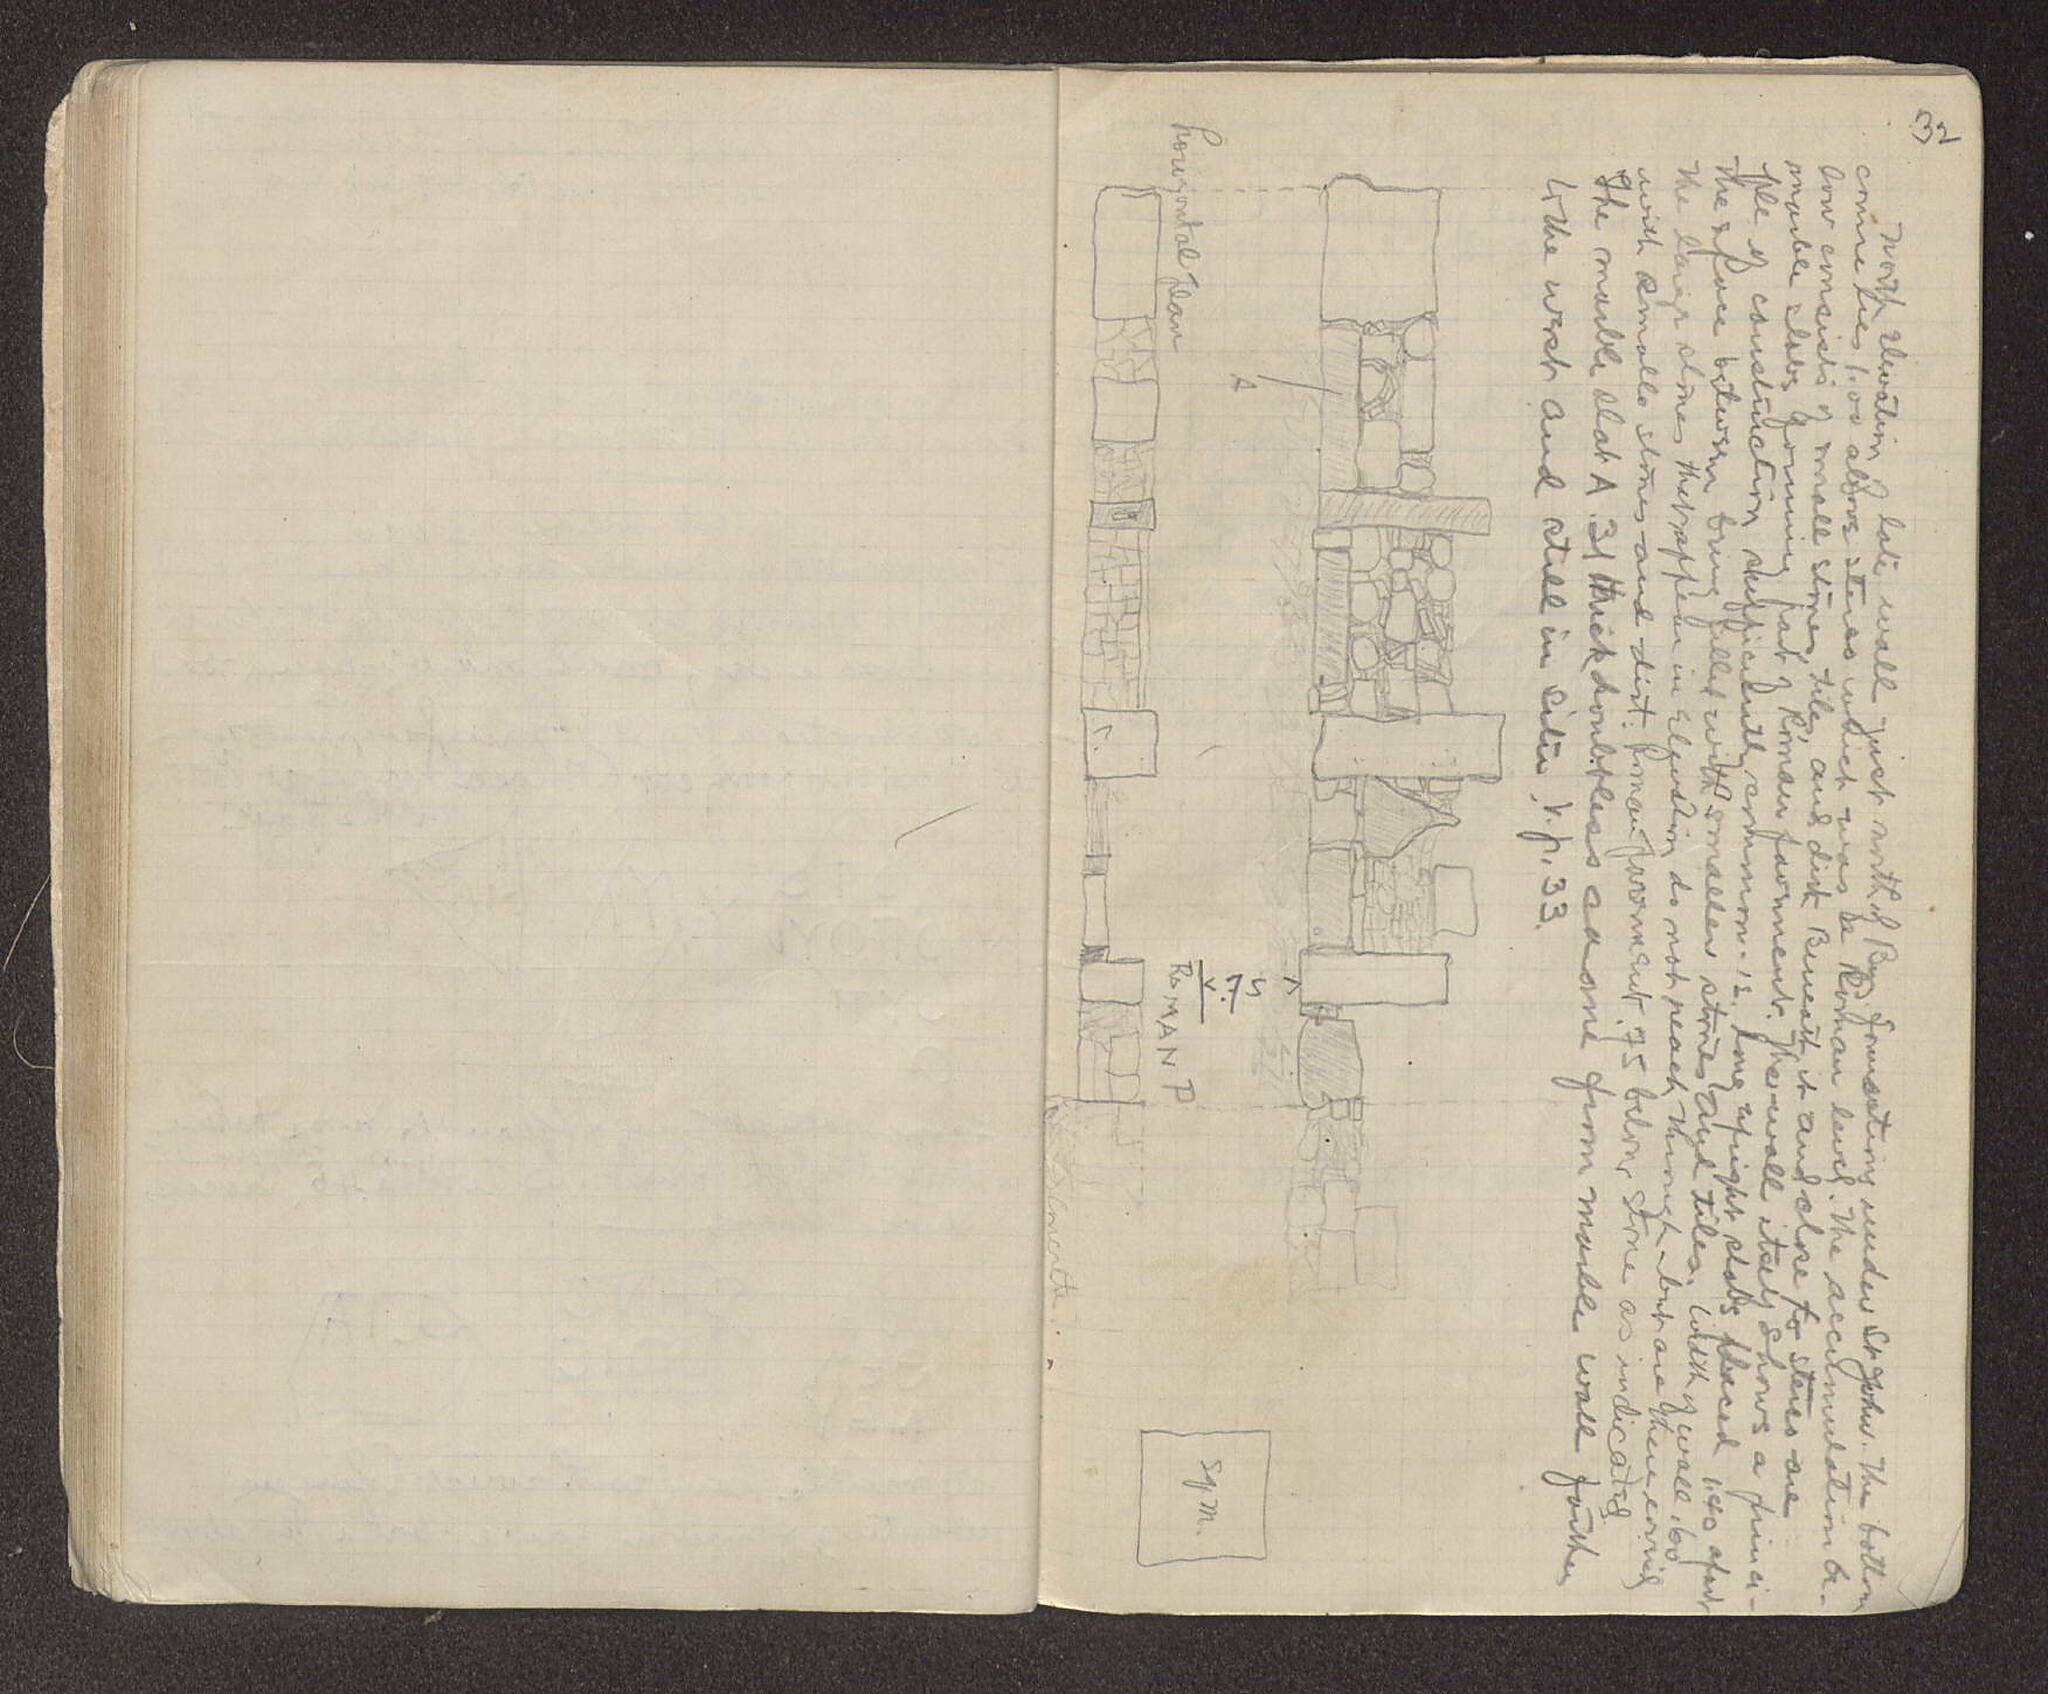 32
North elevation of late wall just north of Byz foundations under St John. The bottom
comes 1.00 above stereo which was be Roman level. The accumulation be-
low consists of small stones, tiles, and dirt Beneath it and close to stereo are
marble slabs forming part of Roman pavement. The wall itself shows a princi-
ple of construction sufficiently common. i.e. long upright slabs placed 1.40 apart
the space between being filled with smaller stones and tiles. Width of wall .60
The larger stones that appear in elevation do not reach through but are there
with smalle stones and dirt. Roman pavement .75 below stone as indicated.
The marble slat A .31 thick doubtless came from marble wall further
to the west and still in situ. v. p. 33.
A
.75
Horizontal plan
ROMAN P
concrete.
Sq m.